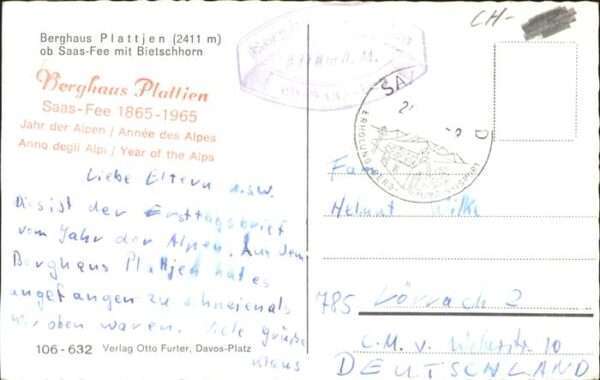 Berghaus Plattjen (2411 m)
ob Saas-Fee mit Bietschhorn
CH-
Berghaus Plattjen
Saas-Fee 1865-1965
Jahr der Alpen / Année des Alpes
Anno degli Alpi / Year of the Alps
Liebe Eltern u.s.w.
Dies ist der Ersttagsbrief
vom Jahr der Alpen. Aus dem
Berghaus Plattjen hat es
angefangen zu schneien als
wir oben waren. Viele Grüße
Klaus
106-632 Verlag Otto Furter, Davos-Platz
SA
Fam
Helmut
785 Lörrach 2
C.M. v. 10
DEUTSCHLAND